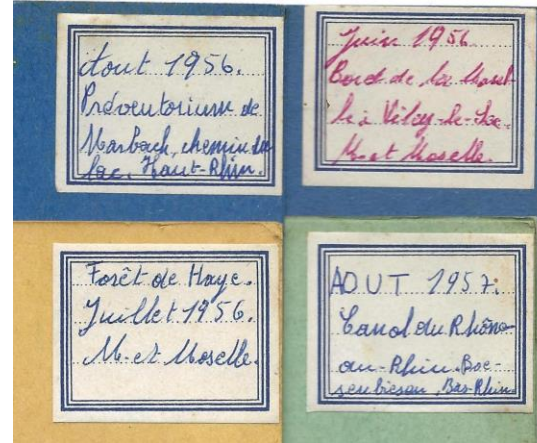 Aout 1956.
Préventorium de
Marbach, chemin du
lac. Haut-Rhin.
Juin 1956
Bord de la Mosel
le à Villey-le-Sec.
M. et Moselle.
Forêt de Haye.
Juillet 1956.
M. et Moselle.
AOUT 1957.
Canal du Rhône
au Rhin.
Bas-Rhin.